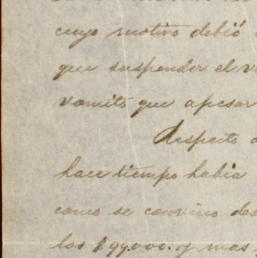 cuyo motivo debió
que suspender el v
vomito que apesar
Respecto a
hace tiempo habia
como se convino des
los $99.000. y mas